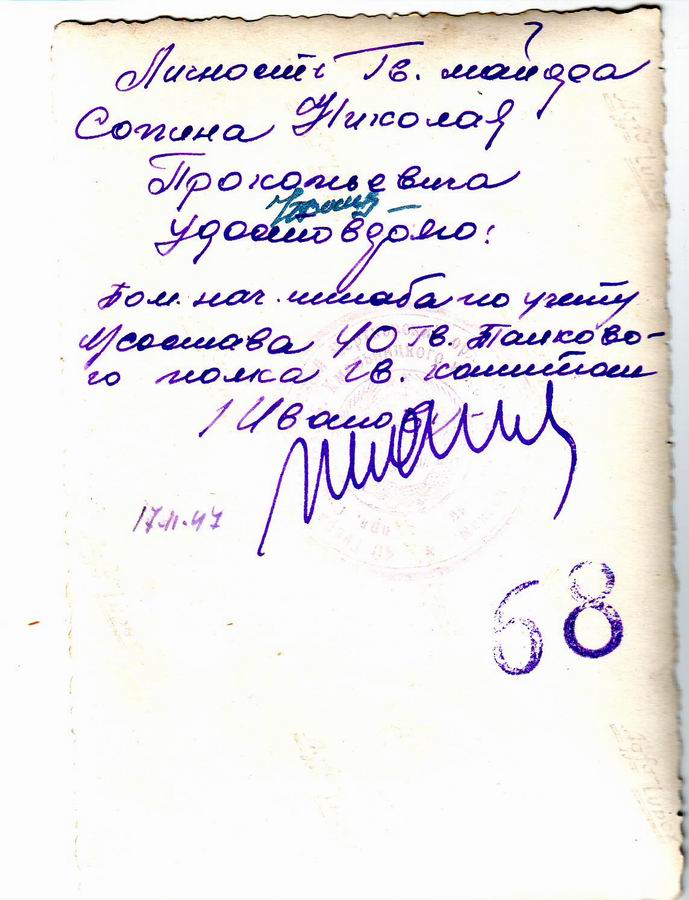 Личность Гв. майора
Сопина Николая
Прокопьевича
удостоверяю:
Пом. нач. штаба по учету
л/состава 40 Гв. Танково-
го полка Гв. капитан
/Иванов/
17.11.47
68